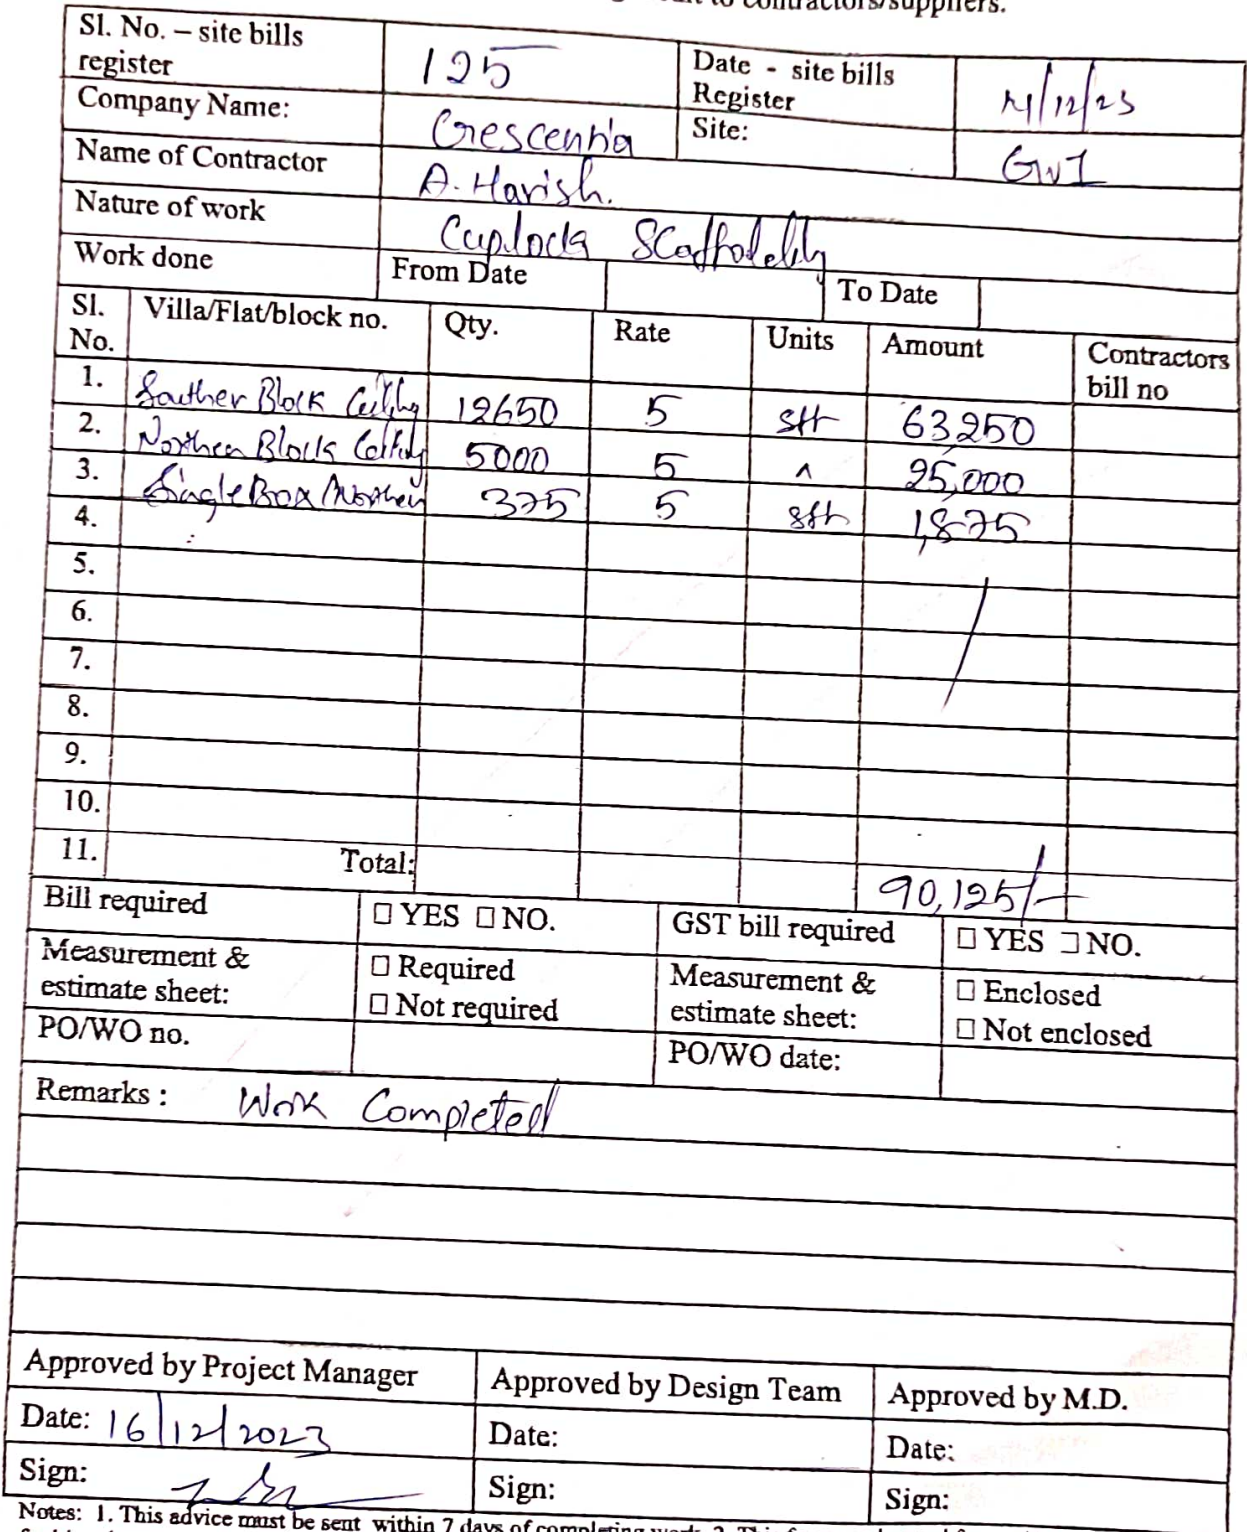 to contractors/suppliers.
Sl. No. – site bills register 125 Date - site bills Register /12/23
Company Name: Crescentia Site: GV1
Name of Contractor A. Harish.
Nature of work Cuplock Scaffolding
Work done From Date To Date
Sl. No. Villa/Flat/block no. Qty. Rate Units Amount Contractors bill no
1. Souther Block Ceiling 12650 5 sft 63,250
2. Northen Block Ceiling 5000 5 " 25,000
3. Single Box Northen 375 5 sft 1,875
4.
5.
6.
7.
8.
9.
10.
11. Total: 90,125/-
Bill required ☐ YES ☐ NO. GST bill required ☐ YES ☐ NO.
Measurement & estimate sheet: ☐ Required ☐ Not required Measurement & estimate sheet: ☐ Enclosed ☐ Not enclosed
PO/WO no. PO/WO date:
Remarks : Work Completed
Approved by Project Manager Approved by Design Team Approved by M.D.
Date: 16/12/2023 Date: Date:
Sign: Sign: Sign:
Notes: 1. This advice must be sent within 7 days of completing work. 2. This